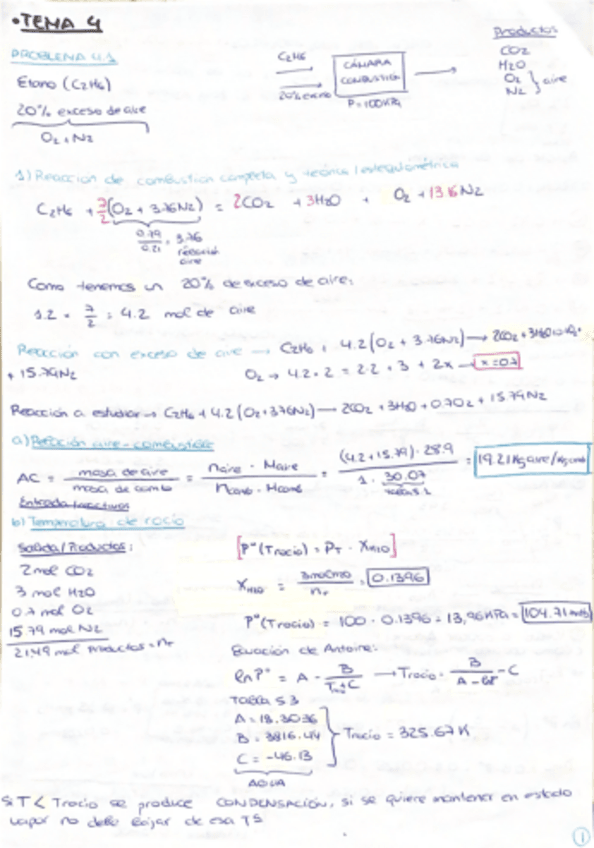 • TEMA 4
PROBLEMA 4.1
Etano (C2H6)
20% exceso de aire
O2 + N2
C2H6
20% exceso
CÁMARA
COMBUSTIÓN
P = 100 KPa
Productos
CO2
H2O
O2
N2 } aire
1) Reacción de combustión completa y teórica / estequiométrica
C2H6 + 7/2 (O2 + 3.76N2) = 2CO2 + 3H2O + O2 + 13.16 N2
0.79/0.21 = 3.76
relación
aire
Como tenemos un 20% de exceso de aire:
1.2 · 7/2 = 4.2 mol de aire
Reacción con exceso de aire → C2H6 + 4.2 (O2 + 3.76N2) → 2CO2 + 3H2O +
+ 15.79N2
O2 → 4.2·2 = 2·2 + 3 + 2x → x = 0.7
Reacción a estudiar → C2H6 + 4.2 (O2 + 3.76N2) — 2CO2 + 3H2O + 0.7O2 + 15.79N2
a) Relación aire-combustible
AC = masa de aire / masa de comb = naire · Maire / ncomb · Mcomb = (4.2 + 15.79) · 28.9 / 1 · 30.07 = 19.21 Kg aire/Kg comb
Entrada/reactivos
b) Temperatura de rocío
Salida/Productos:
2 mol CO2
3 mol H2O
0.7 mol O2
15.79 mol N2
21.49 mol productos = nT
[P°(Trocio) = PT · XH2O]
XH2O = 3 mol H2O / nT = 0.1396
P°(Trocio) = 100 · 0.1396 = 13,96 KPa = 104.71 mmHg
Ecuación de Antoine:
ln P° = A - B / T + C → Trocio = B / A - ln P° - C
Tabla 5.3
A = 18.3036
B = 3816.44
C = -46.13
AGUA
Trocio = 325.67 K
Si T < Trocio se produce CONDENSACIÓN, si se quiere mantener en estado
vapor no debe bajar de esa TS
1